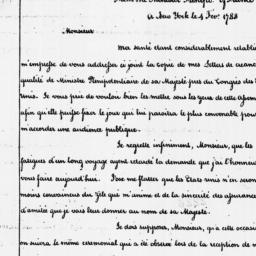 à New York le 4 Fevr. 1788
Monsieur
Ma santé étant considerablement retablie
m'empresse de vous addresser ci joint la Copie de mes Lettres de creance
qualité de Ministre Plenipotentiaire de sa Majesté près du Congrès des
Unis. Je vous prie de vouloir bien les mettre sous les yeux de cette
afin qu'elle puisse fixer le jour qui lui paraitra le plus convenable pour
m'accorder une audience publique.
Je regrette infiniment, Monsieur, que les
fatigues d'un long voyage ayent retardé la demande que j'ai l'honneur
vous faire aujourd'hui. J'ose me flatter que les Etats unis n'en seront
moins convaincus du zèle qui m'anime et de la sincerité des assurances
d'amitié que je vais leur donner au nom de sa Majesté.
Je dois supposer, Monsieur, qu'à cette occasion
on suivra le même ceremonial qui a été observé lors de la reception de